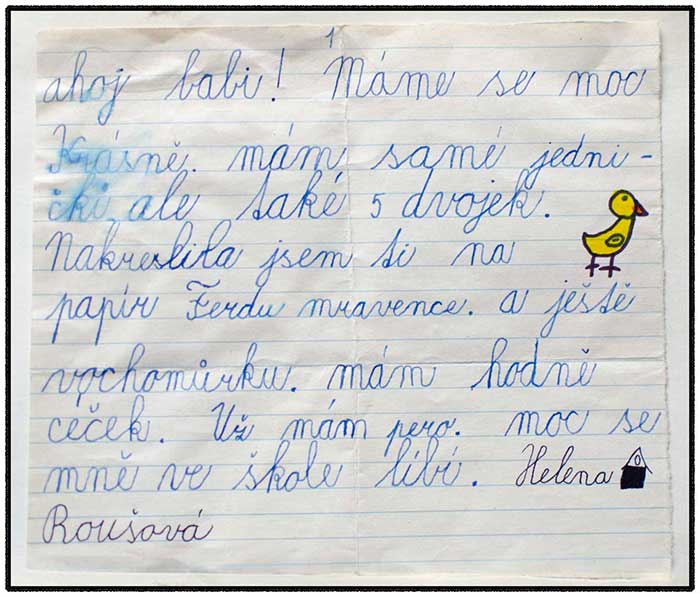 1
ahoj babi! Máme se moc
Krásně. mám samé jedni-
čki ale také 5 dvojek.
Nakreslila jsem ti na
papír Ferdu mravence. a ještě
vochomůrku. mám hodně
céček. Už mám pero. moc se
mně ve škole líbí. Helena
Roušová